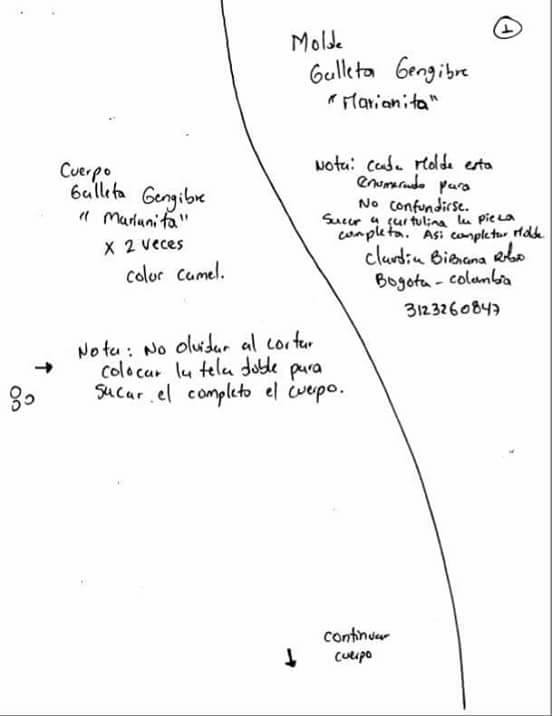 1
Molde
Galleta Gengibre
"Marianita"
Nota: Cada Molde esta
enumerado para
No confundirse.
Sacar a cartulina la pieza
completa. Asi completar Molde
Claudia Bibiana
Bogota - Colombia
3123260847
Cuerpo
Galleta Gengibre
"Marianita"
x 2 veces
color camel.
Nota: No olvidar al cortar
colocar la tela doble para
Sacar el completo el cuerpo.
continuar
cuerpo